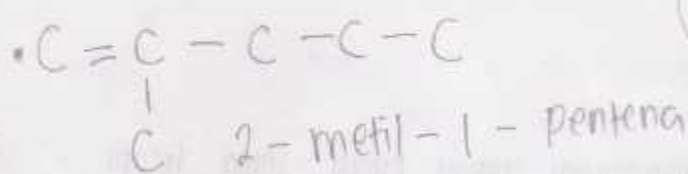 • C = C - C - C - C
|
C 2 - metil - 1 - pentena